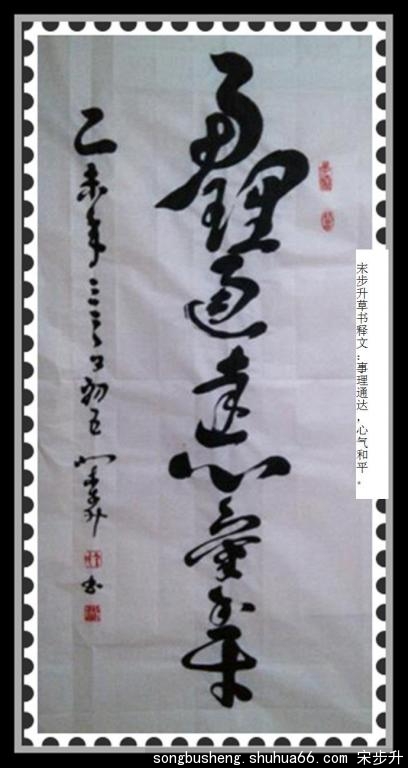 宋步升草书释文：事理通达，心气和平。
事理通達心氣和平
乙未年三月初五 宋步升 书
songbusheng.shuhua66.com 宋步升